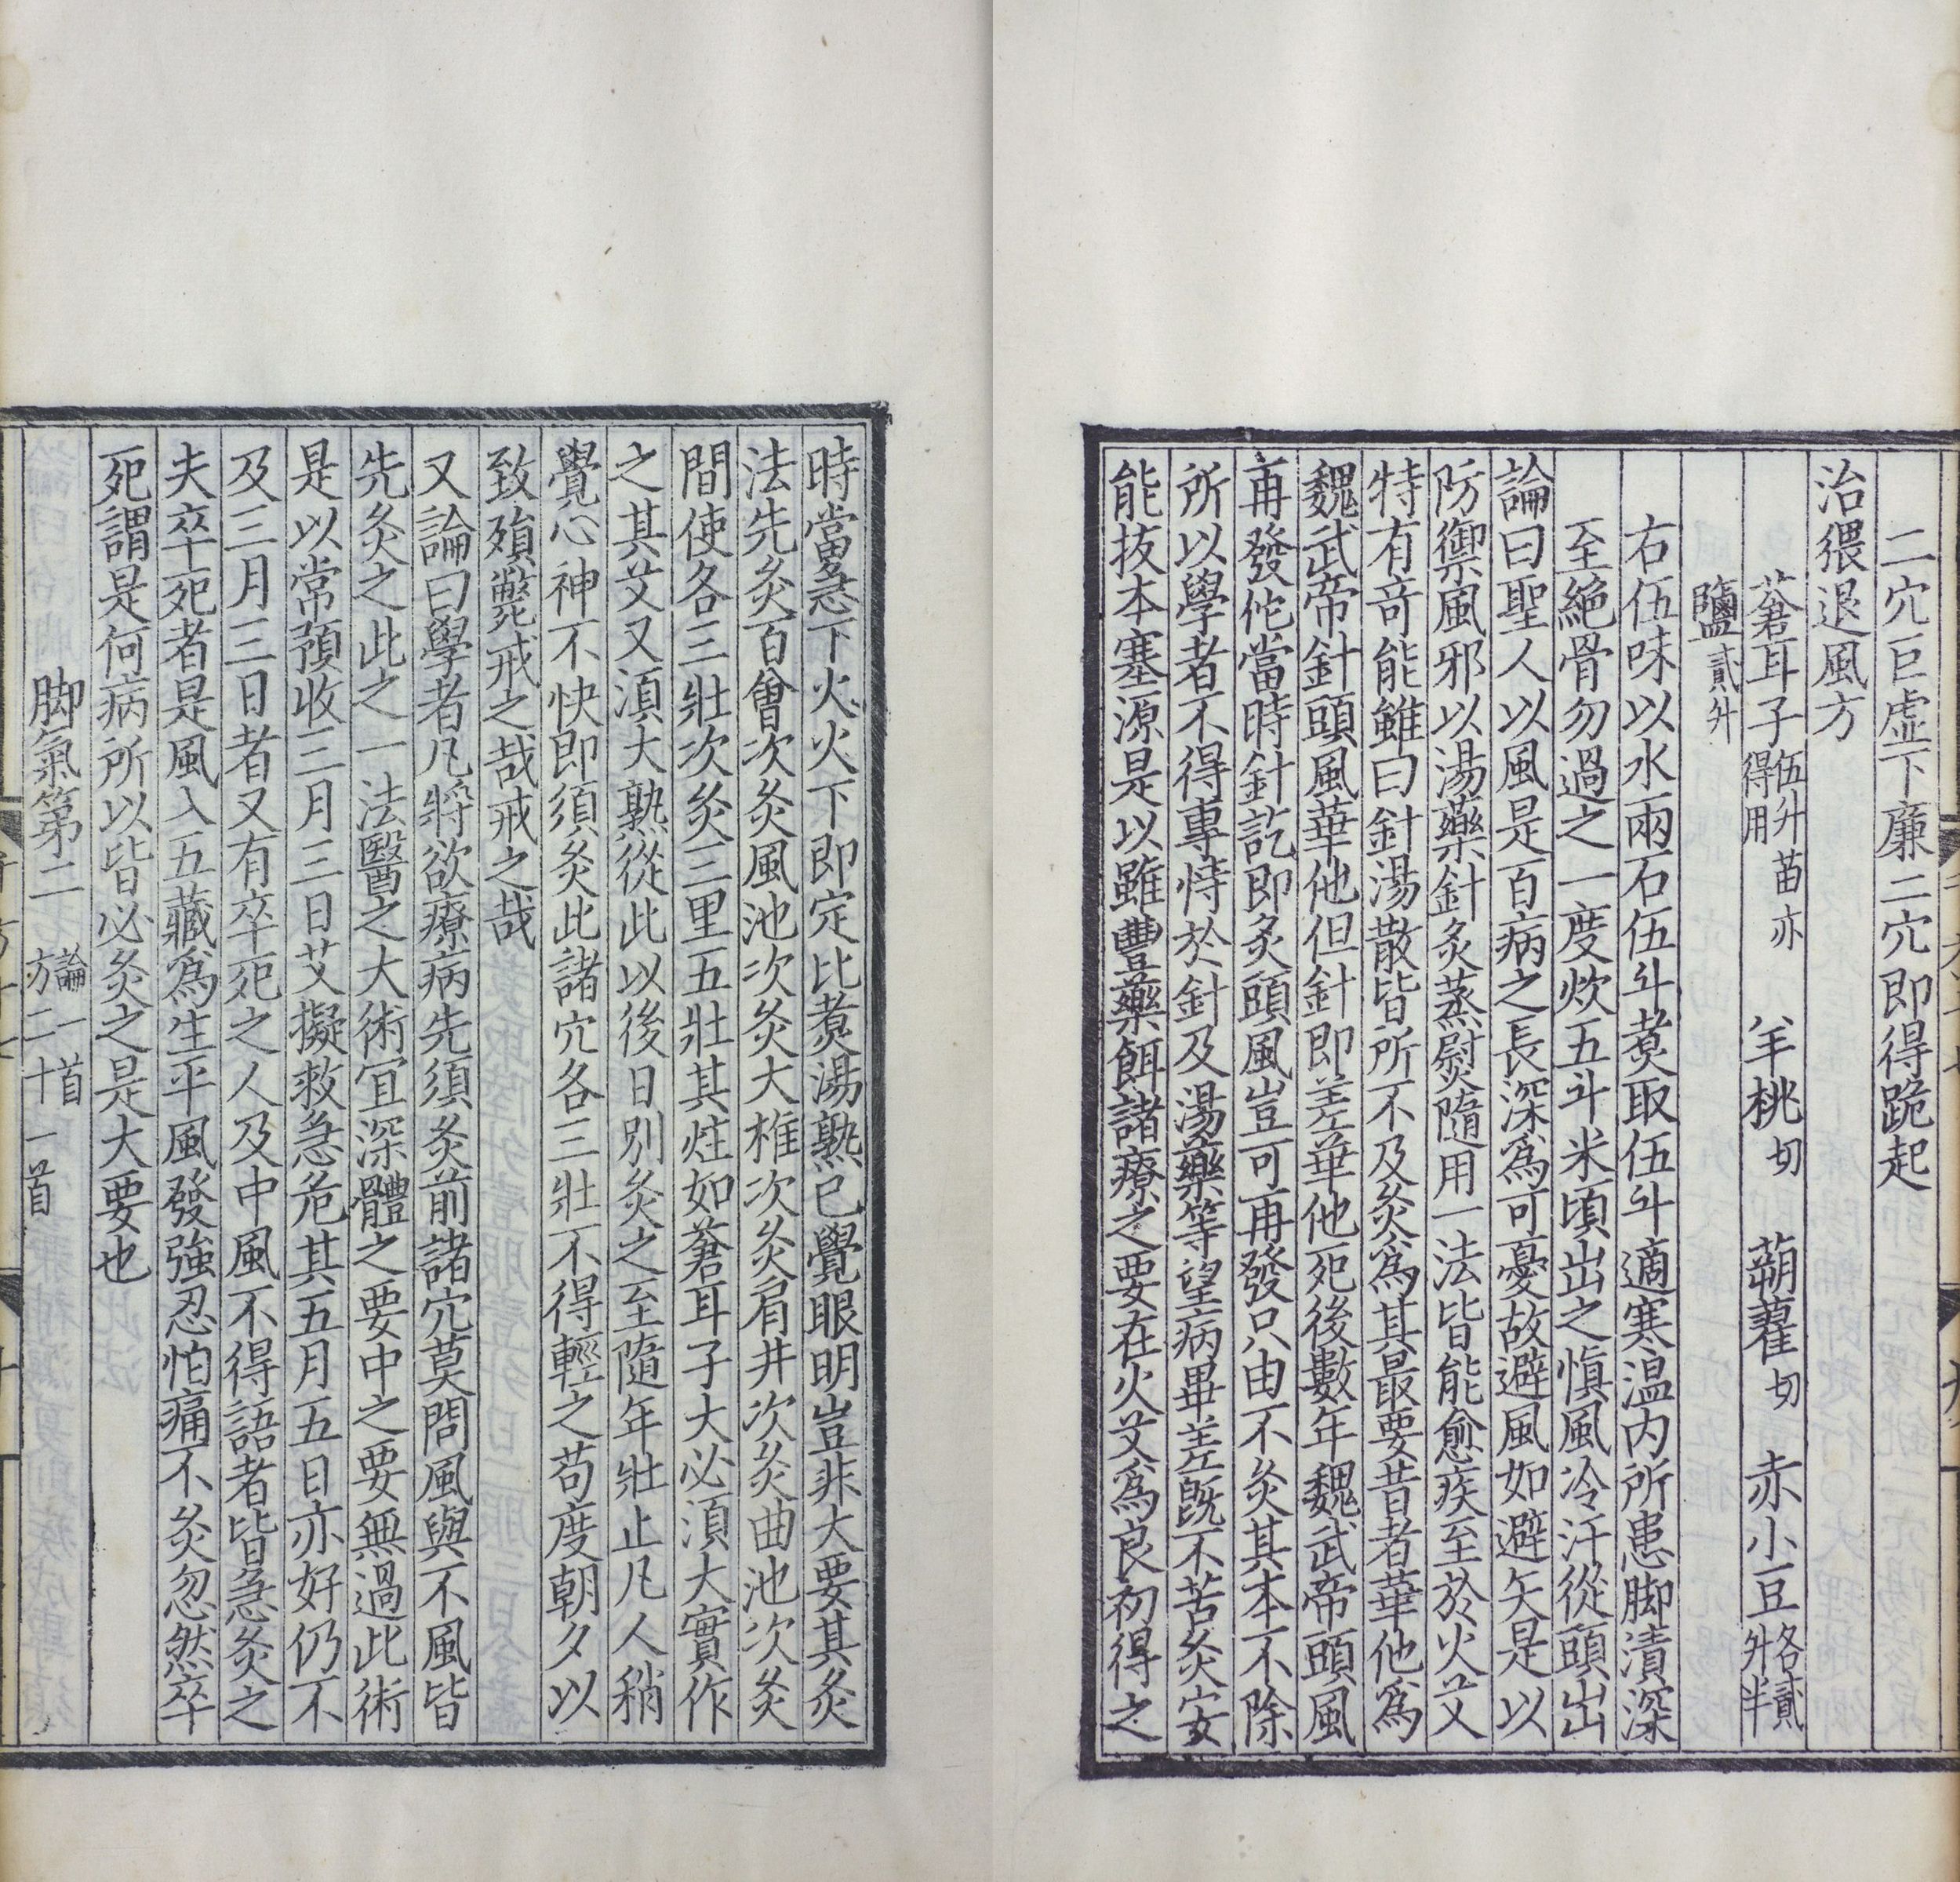 二穴巨虚下廉二穴即得跪起
治猥退風方
蒼耳子伍升苗亦得用 羊桃切 蒴藋切 赤小豆各貳升半
鹽貳升
右伍味以水兩石伍斗煑取伍斗適寒温内所患脚漬深
至絶骨勿過之一度炊五斗米頃出之慎風冷汗從頭出
論曰聖人以風是百病之長深爲可憂故避風如避矢是以
防禦風邪以湯藥針灸蒸熨隨用一法皆能愈疾至於火艾
特有竒能雖曰針湯散皆所不及灸爲其最要昔者華他爲
魏武帝針頭風華他但針即差華他死後數年魏武帝頭風
再發佗當時針訖即灸頭風豈可再發只由不灸其本不除
所以學者不得專恃於針及湯藥等望病畢差旣不苦灸安
能抜本塞源是以雖豐藥餌諸療之要在火艾爲良初得之
時當急下火火下即定比煑湯熟已覺眼明豈非大要其灸
法先灸百會次灸風池次灸大椎次灸肩井次灸曲池次灸
間使各三壯次灸三里五壯其炷如蒼耳子大必湏大實作
之其艾又湏大熟從此以後日別灸之至隨年壯止凡人稍
覺心神不快即須灸此諸穴各三壯不得輕之苟度朝夕以
致殞斃戒之哉戒之哉
又論曰學者凡將欲療病先須灸前諸穴莫問風與不風皆
先灸之此之一法醫之大術冝深體之要中之要無過此術
是以常預收三月三日艾擬救急危其五月五日亦好仍不
及三月三日者又有卒死之人及中風不得語者皆急灸之
夫卒死者是風入五藏爲生平風發強忍怕痛不灸忽然卒
死謂是何病所以皆必灸之是大要也
脚氣第二 論一首 方二十一首